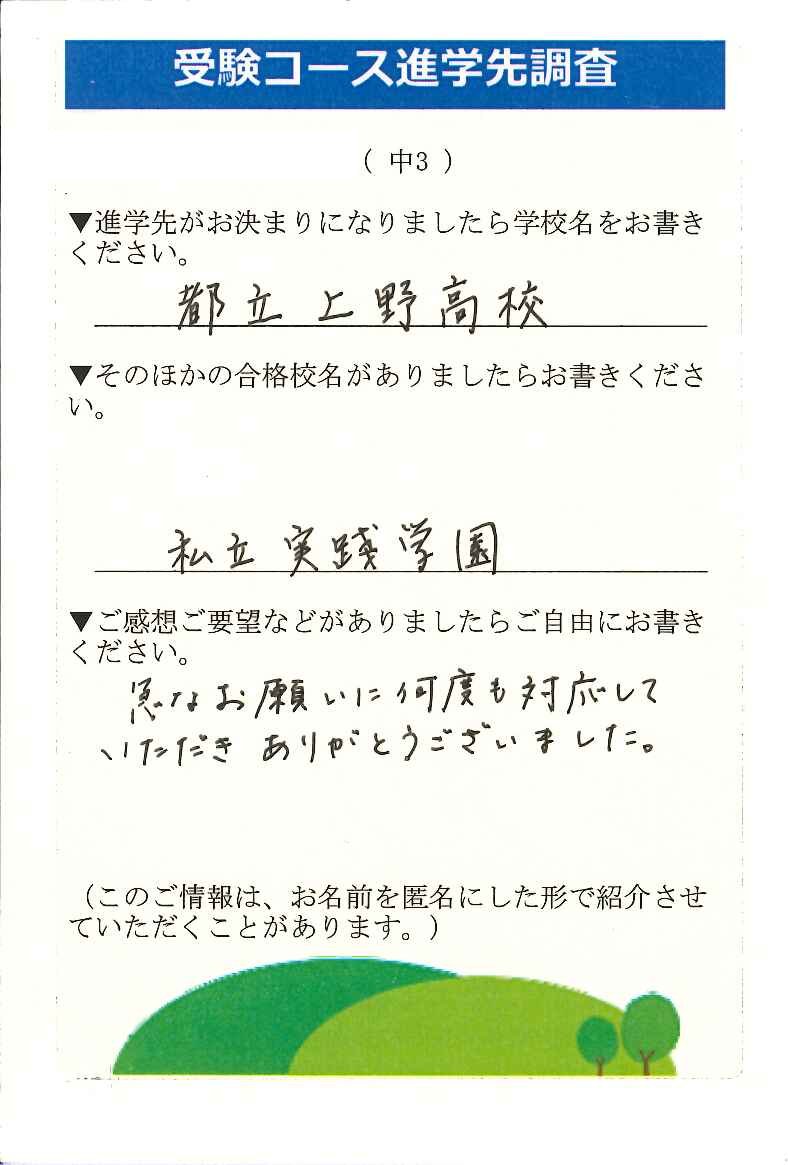 受験コース進学先調査
( 中3 )
▼進学先がお決まりになりましたら学校名をお書き
ください。
都立上野高校
▼そのほかの合格校名がありましたらお書きくださ
い。
私立実践学園
▼ご感想ご要望などがありましたらご自由にお書き
ください。
急なお願いに何度も対応して
いただきありがとうございました。
（このご情報は、お名前を匿名にした形で紹介させ
ていただくことがあります。）